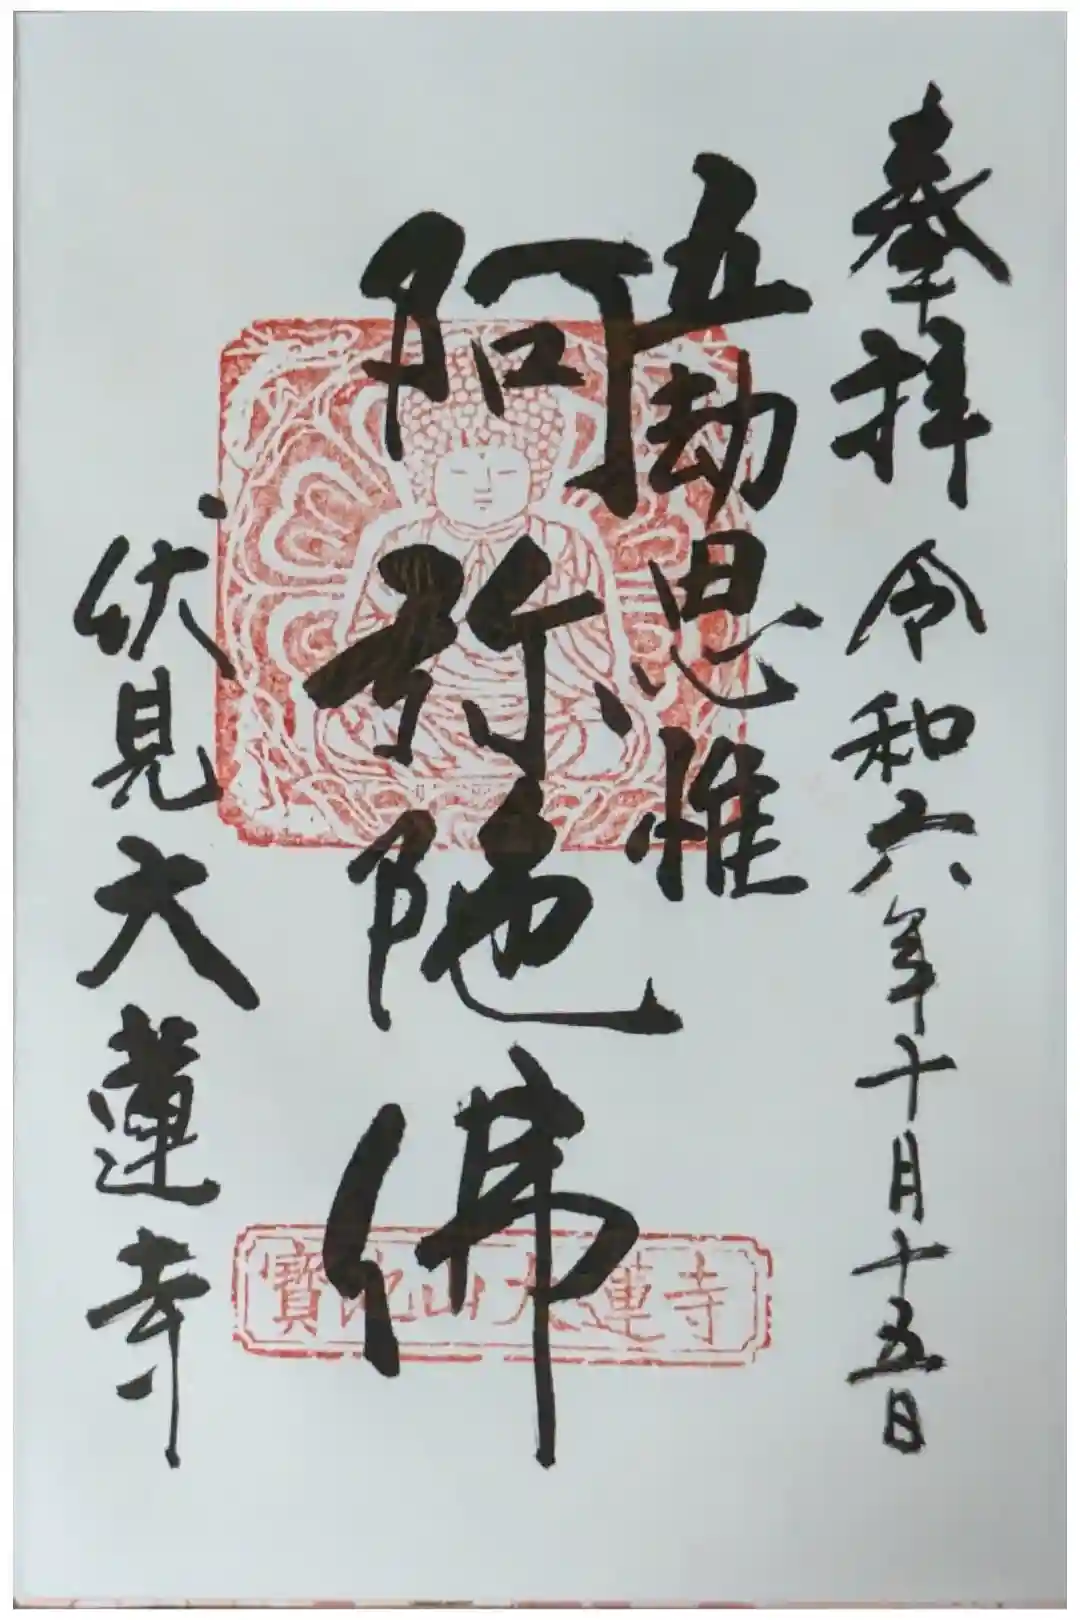 奉拝 令和六年十月十五日
五劫思惟
阿弥陀佛
伏見大蓮寺
寶池山大蓮寺